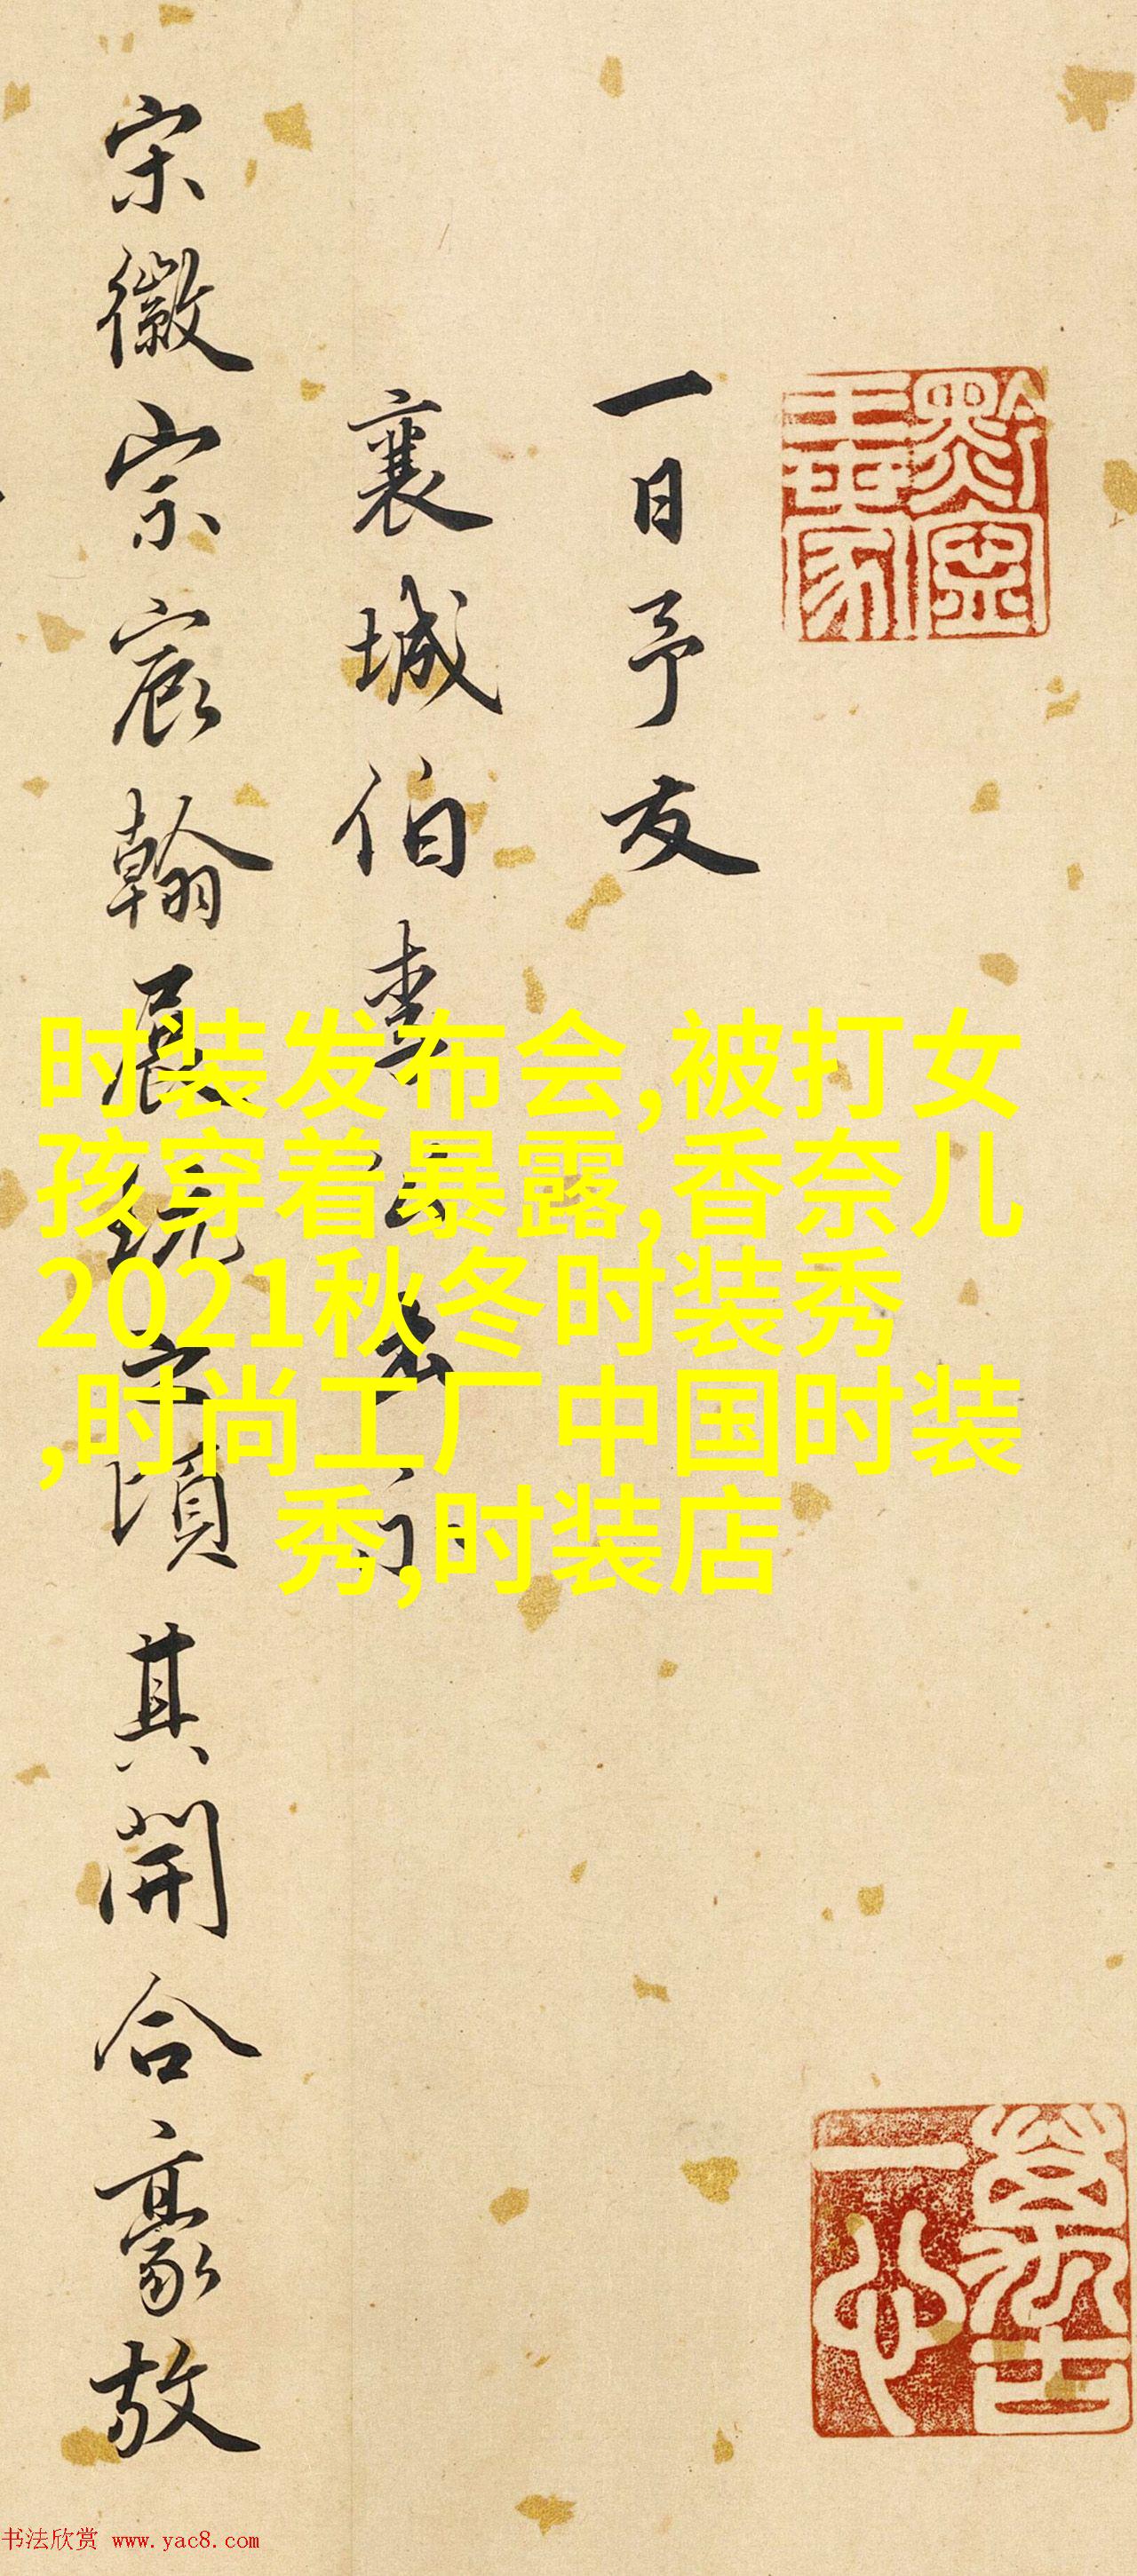 黔寧
王世家
一日予友
襄城伯李公出示
宋徽宗宸翰展玩之頃其開合豪放
时装发布会,被打女
孩穿着暴露,香奈儿
2021秋冬时装秀
,时尚工厂中国时装
秀,时装店
萬古
一心
书法欣赏 www.yac8.com